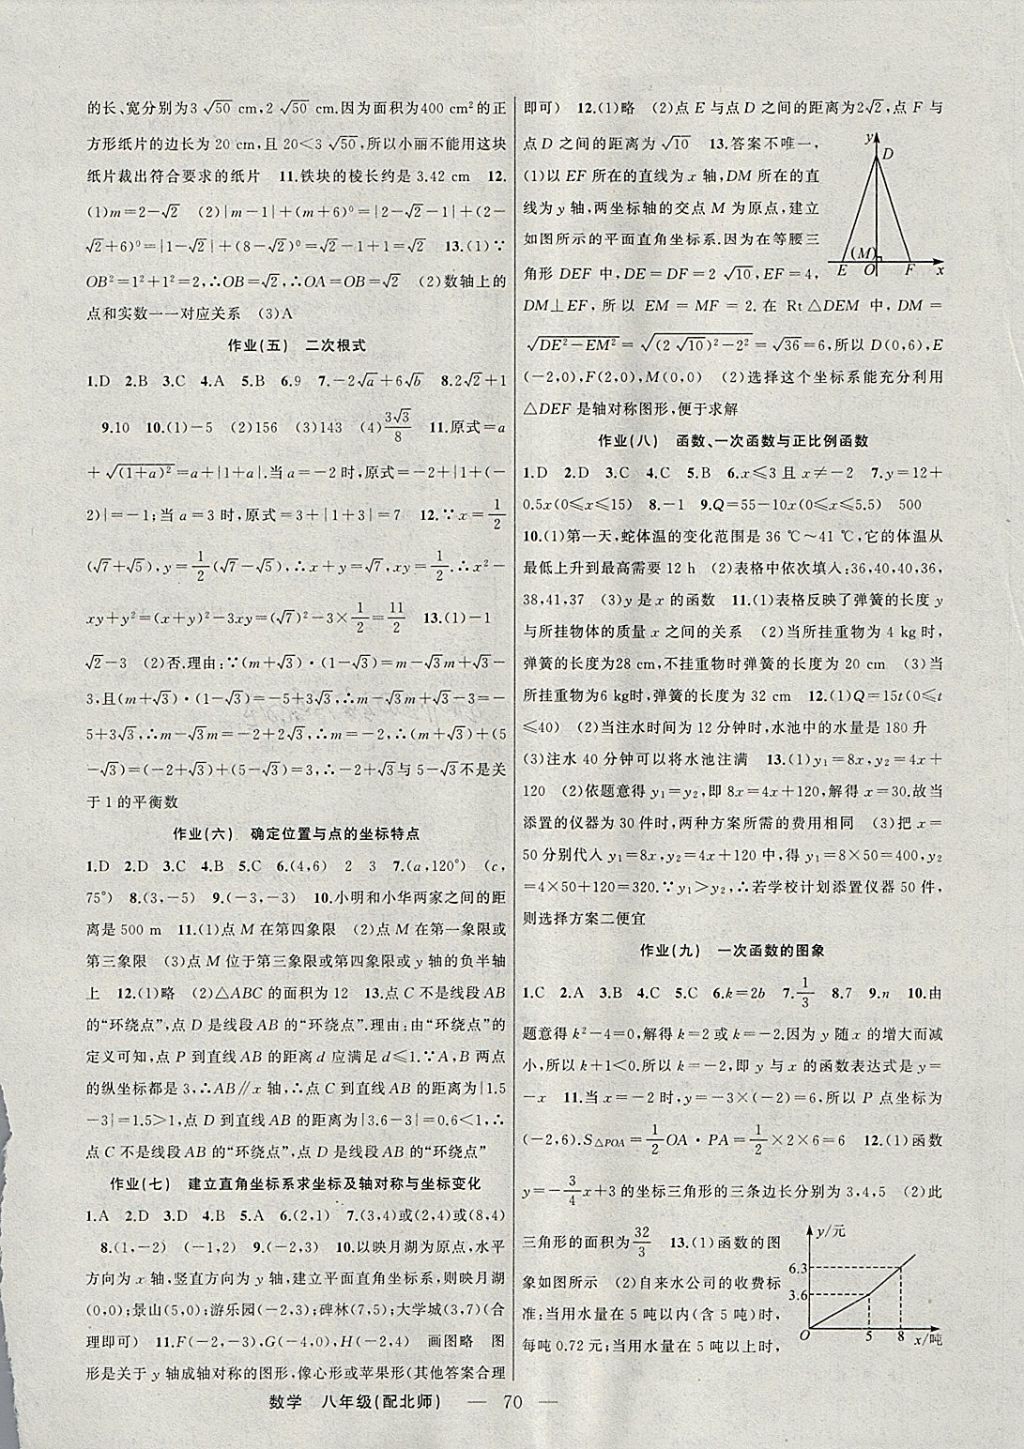 的长、宽分别为3 √50 cm,2 √50 cm.因为面积为400 cm²的正
方形纸片的边长为 20 cm,且 20<3 √50,所以小丽不能用这块
纸片裁出符合要求的纸片 11.铁块的棱长约是 3.42 cm 12.
(1)m=2-√2 (2)|m-1|+(m+6)⁰=|2-√2-1|+(2-
√2+6)⁰=|1-√2|+(8-√2)⁰=√2-1+1=√2 13.(1)∵
OB²=1²+1²=2,∴OB=√2,∴OA=OB=√2 (2)数轴上的
点和实数一一对应关系 (3)A
作业(五) 二次根式
1.D 2.B 3.C 4.A 5.B 6.9 7.-2√a+6√b 8.2√2+1
9.10 10.(1)-5 (2)156 (3)143 (4)3√3/8 11.原式=a
+√(1+a)²=a+|1+a|.当a=-2时,原式=-2+|1+(-
2)|=-1;当a=3时,原式=3+|1+3|=7 12.∵x=1/2
(√7+√5),y=1/2(√7-√5),∴x+y=√7,xy=1/2.∴x²-
xy+y²=(x+y)²-3xy=(√7)²-3×1/2=11/2 13.(1)-1
√2-3 (2)否.理由:∵(m+√3)·(1-√3)=m-√3m+√3-
3,且(m+√3)·(1-√3)=-5+3√3,∴m-√3m+√3-3=-
5+3√3,∴m-√3m=-2+2√3,∴m=-2,∴(m+√3)+(5
-√3)=(-2+√3)+(5-√3)=3,∴-2+√3与5-√3不是关
于1的平衡数
作业(六) 确定位置与点的坐标特点
1.D 2.D 3.C 4.B 5.C 6.(4,6) 2 3 7.(a,120°) (c,
75°) 8.(3,-5) 9.(-3,-3) 10.小明和小华两家之间的距
离是500 m 11.(1)点M在第四象限 (2)点M在第一象限或
第三象限 (3)点M位于第三象限或第四象限或y轴的负半轴
上 12.(1)略 (2)△ABC的面积为12 13.点C不是线段AB
的“环绕点”,点D是线段AB的“环绕点”.理由:由“环绕点”的
定义可知,点P到直线AB的距离d应满足d≤1.∵A,B两点
的纵坐标都是3,∴AB∥x轴,∴点C到直线AB的距离为|1.5
-3|=1.5>1,点D到直线AB的距离为|3.6-3|=0.6<1,∴
点C不是线段AB的“环绕点”,点D是线段AB的“环绕点”
作业(七) 建立直角坐标系求坐标及轴对称与坐标变化
1.A 2.D 3.D 4.B 5.A 6.(2,1) 7.(3,4)或(2,4)或(8,4)
8.(1,-2) (-1,2) 9.(-2,3) 10.以映月湖为原点,水平
方向为x轴,竖直方向为y轴,建立平面直角坐标系,则映月湖
(0,0);景山(5,0);游乐园(-2,3);碑林(7,5);大学城(3,7)(合
理即可) 11.F(-2,-3),G(-4,0),H(-2,4) 画图略 图
形是关于y轴成轴对称的图形,像心形或苹果形(其他答案合理
即可) 12.(1)略 (2)点E与点D之间的距离为2√2,点F与
点D之间的距离为√10 13.答案不唯一,
(1)以EF所在的直线为x轴,DM所在的直
线为y轴,两坐标轴的交点M为原点,建立
如图所示的平面直角坐标系.因为在等腰三
角形DEF中,DE=DF=2 √10,EF=4,
DM⊥EF,所以EM=MF=2.在Rt△DEM中,DM=
√DE²-EM²=√(2 √10)²-2²=√36=6,所以D(0,6),E
(-2,0),F(2,0),M(0,0) (2)选择这个坐标系能充分利用
△DEF是轴对称图形,便于求解
y
D
(M)
E
O
F
x
作业(八) 函数、一次函数与正比例函数
1.D 2.D 3.C 4.C 5.B 6.x≤3且x≠-2 7.y=12+
0.5x(0≤x≤15) 8.-1 9.Q=55-10x(0≤x≤5.5) 500
10.(1)第一天,蛇体温的变化范围是36 ℃~41 ℃,它的体温从
最低上升到最高需要12 h (2)表格中依次填入:36,40,40,36,
38,41,37 (3)y是x的函数 11.(1)表格反映了弹簧的长度y
与所挂物体的质量x之间的关系 (2)当所挂重物为4 kg时,
弹簧的长度为28 cm,不挂重物时弹簧的长度为20 cm (3)当
所挂重物为6 kg时,弹簧的长度为32 cm 12.(1)Q=15t(0≤t
≤40) (2)当注水时间为12分钟时,水池中的水量是180升
(3)注水40分钟可以将水池注满 13.(1)y₁=8x,y₂=4x+
120 (2)依题意得y₁=y₂,即8x=4x+120,解得x=30.故当
添置的仪器为30件时,两种方案所需的费用相同 (3)把x=
50分别代入y₁=8x,y₂=4x+120中,得y₁=8×50=400,y₂
=4×50+120=320.∵y₁>y₂,∴若学校计划添置仪器50件,
则选择方案二便宜
作业(九) 一次函数的图象
1.C 2.A 3.B 4.C 5.C 6.k=2b 7.1/3 8.7 9.n 10.由
题意得k²-4=0,解得k=2或k=-2.因为y随x的增大而减
小,所以k+1<0.所以k=-2,即y与x的函数表达式是y=
-x 11.当x=-2时,y=-3×(-2)=6,所以P点坐标为
(-2,6).S△POA=1/2OA·PA=1/2×2×6=6 12.(1)函数
y=-3/4x+3的坐标三角形的三条边长分别为3,4,5 (2)此
三角形的面积为32/3 13.(1)函数的图
象如图所示 (2)自来水公司的收费标
准:当用水量在5吨以内(含5吨)时,
每吨0.72元;当用水量在5吨以上时,
y/元
6.3
3.6
O
5
8
x/吨
数学 八年级(配北师) — 70 —